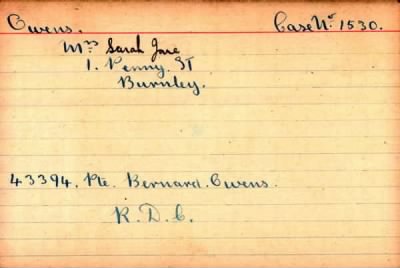 Owens. Case No. 1530.
Mrs Sarah Jane
1. Penny. ST
Burnley.
43394. Pte. Bernard. Owens.
R. D. C.